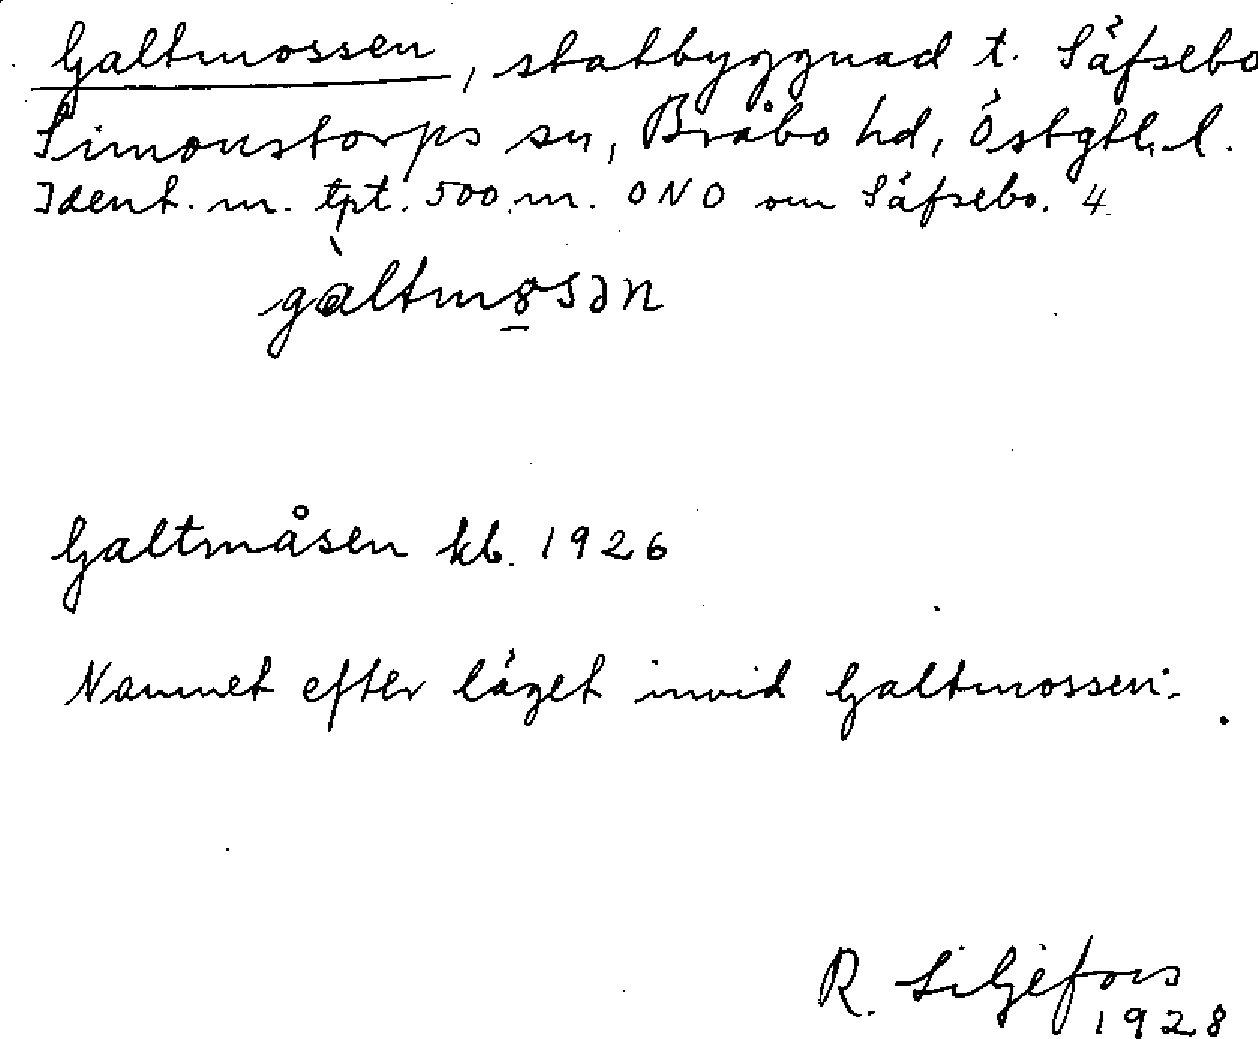 Galtmossen, statbyggnad t. Säfsebo
Simonstorps sn, Bråbo hd, Östgtl. l.
Ident. m. tpt. 500 m. ONO om Säfsebo. 4
gàltmo̲sən
Galtmåsen kb. 1926
Namnet efter läget invid Galtmossen.
R. Liljefors
1928